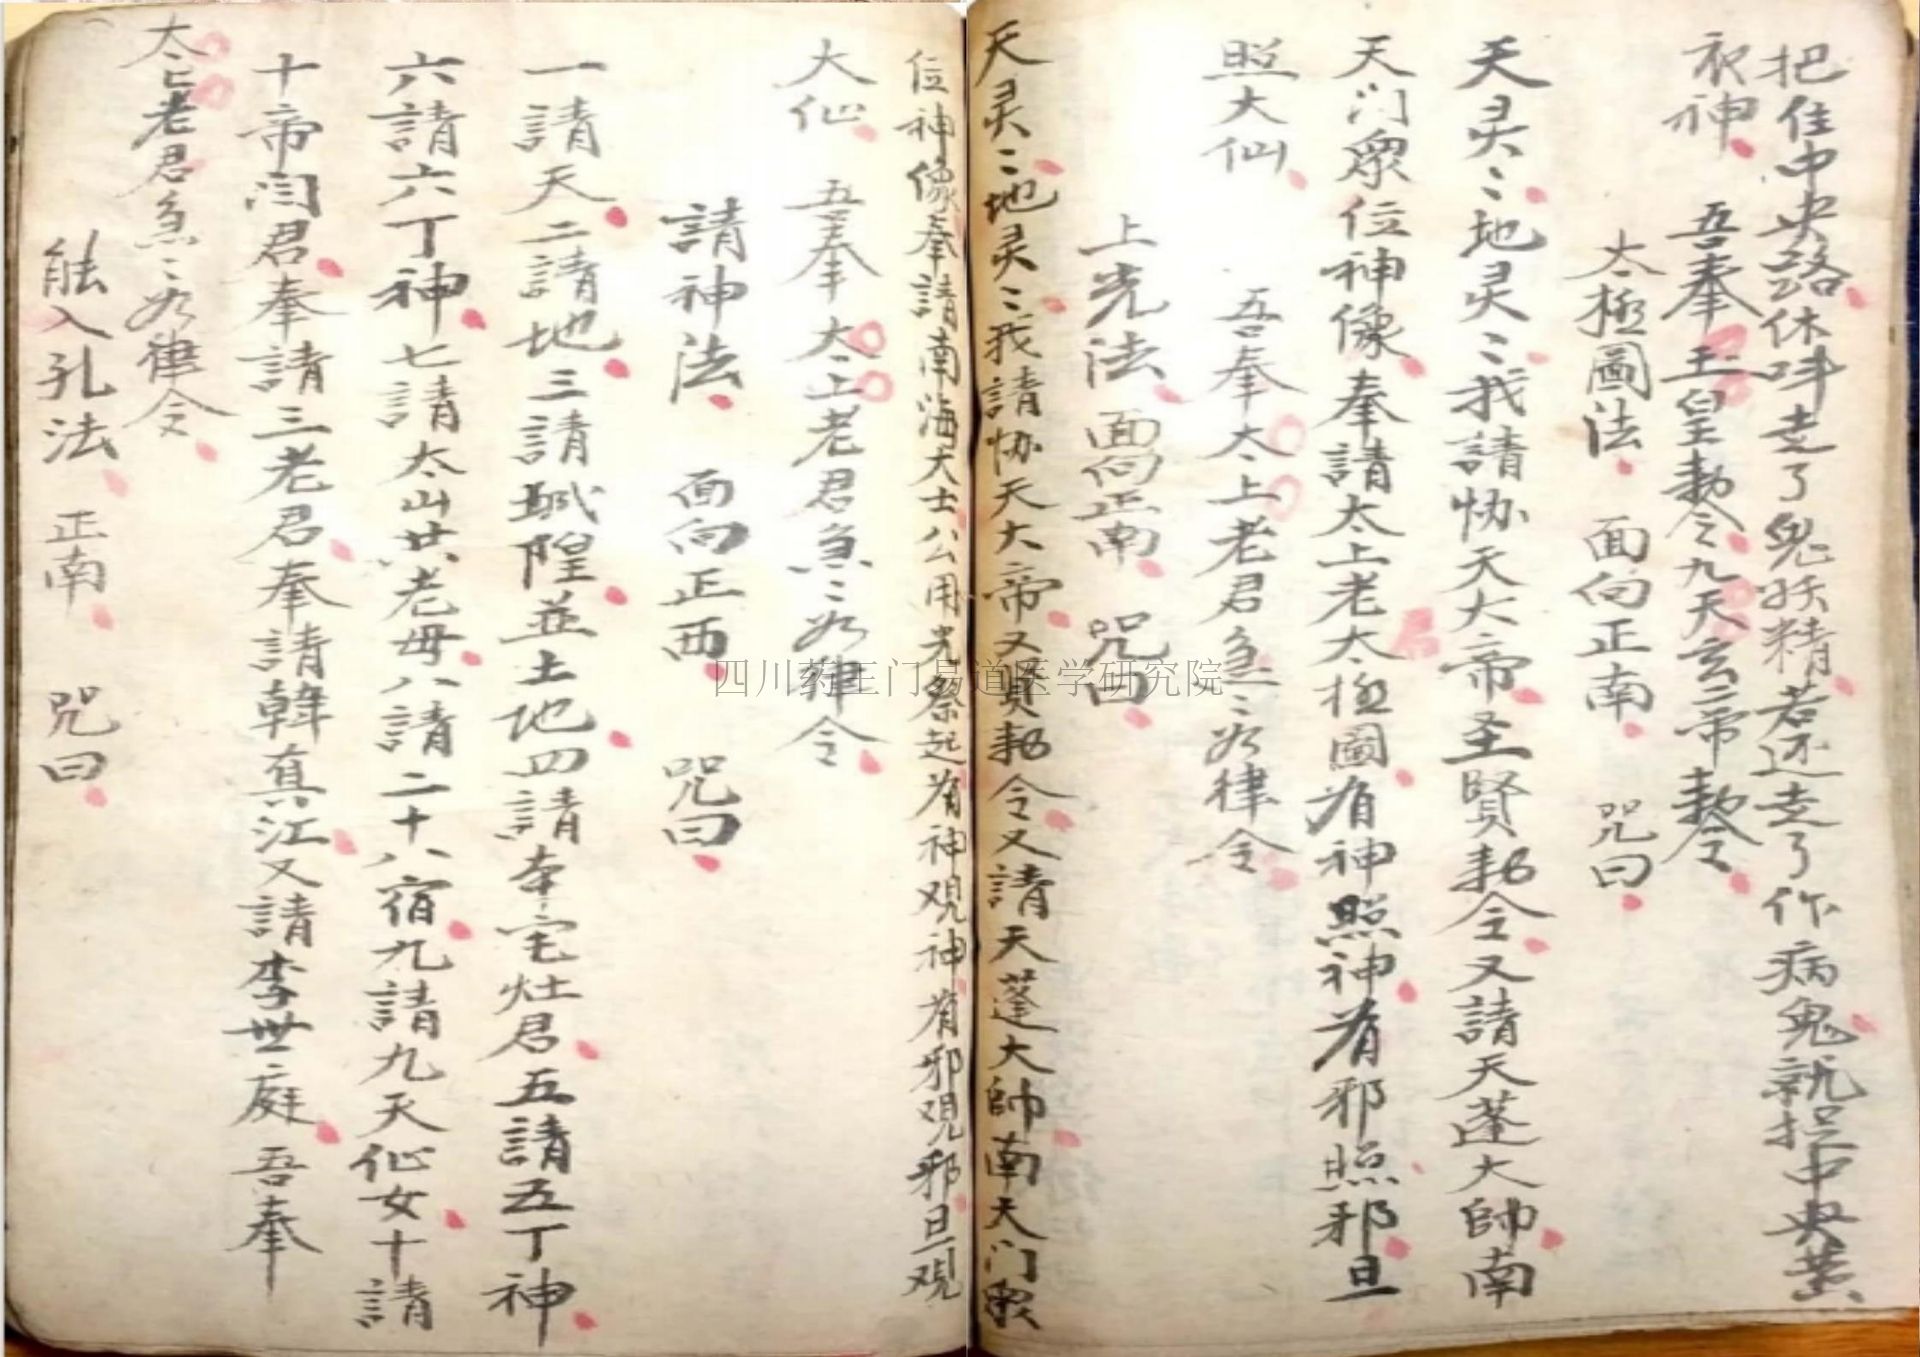 把住中央路休呌走了鬼妖精若还走了作病鬼就拦中央黄
衣神 吾奉玉皇勅令九天玄二帝勅令
太極圖法 面向正南 咒曰
天灵〻地灵〻我請协天大帝圣賢勅令又請天蓬大帥南
天门眾位神像奉請太上老君太極圖有神照神有邪照邪旦
照大仙 吾奉太上老君急〻如律令
上光法 面向正南 咒曰
天灵〻地灵〻我請协天大帝又賢勅令又請天蓬大帥南天门眾
位神像奉請南海大士八公用光祭起有神观神有邪观邪旦观
大仙 五奉太上老君急〻如律令
請神法 面向正西 咒曰
一請天二請地三請城隍並土地四請本宅灶君五請五丁神
六請六丁神七請太山老母八請二十八宿九請九天仙女十請
十帝闫君奉請三老君奉請韓真江又請李世庭 吾奉
太上老君急〻如律令
能入孔法 正南 咒曰
四川药王门易道医学研究院